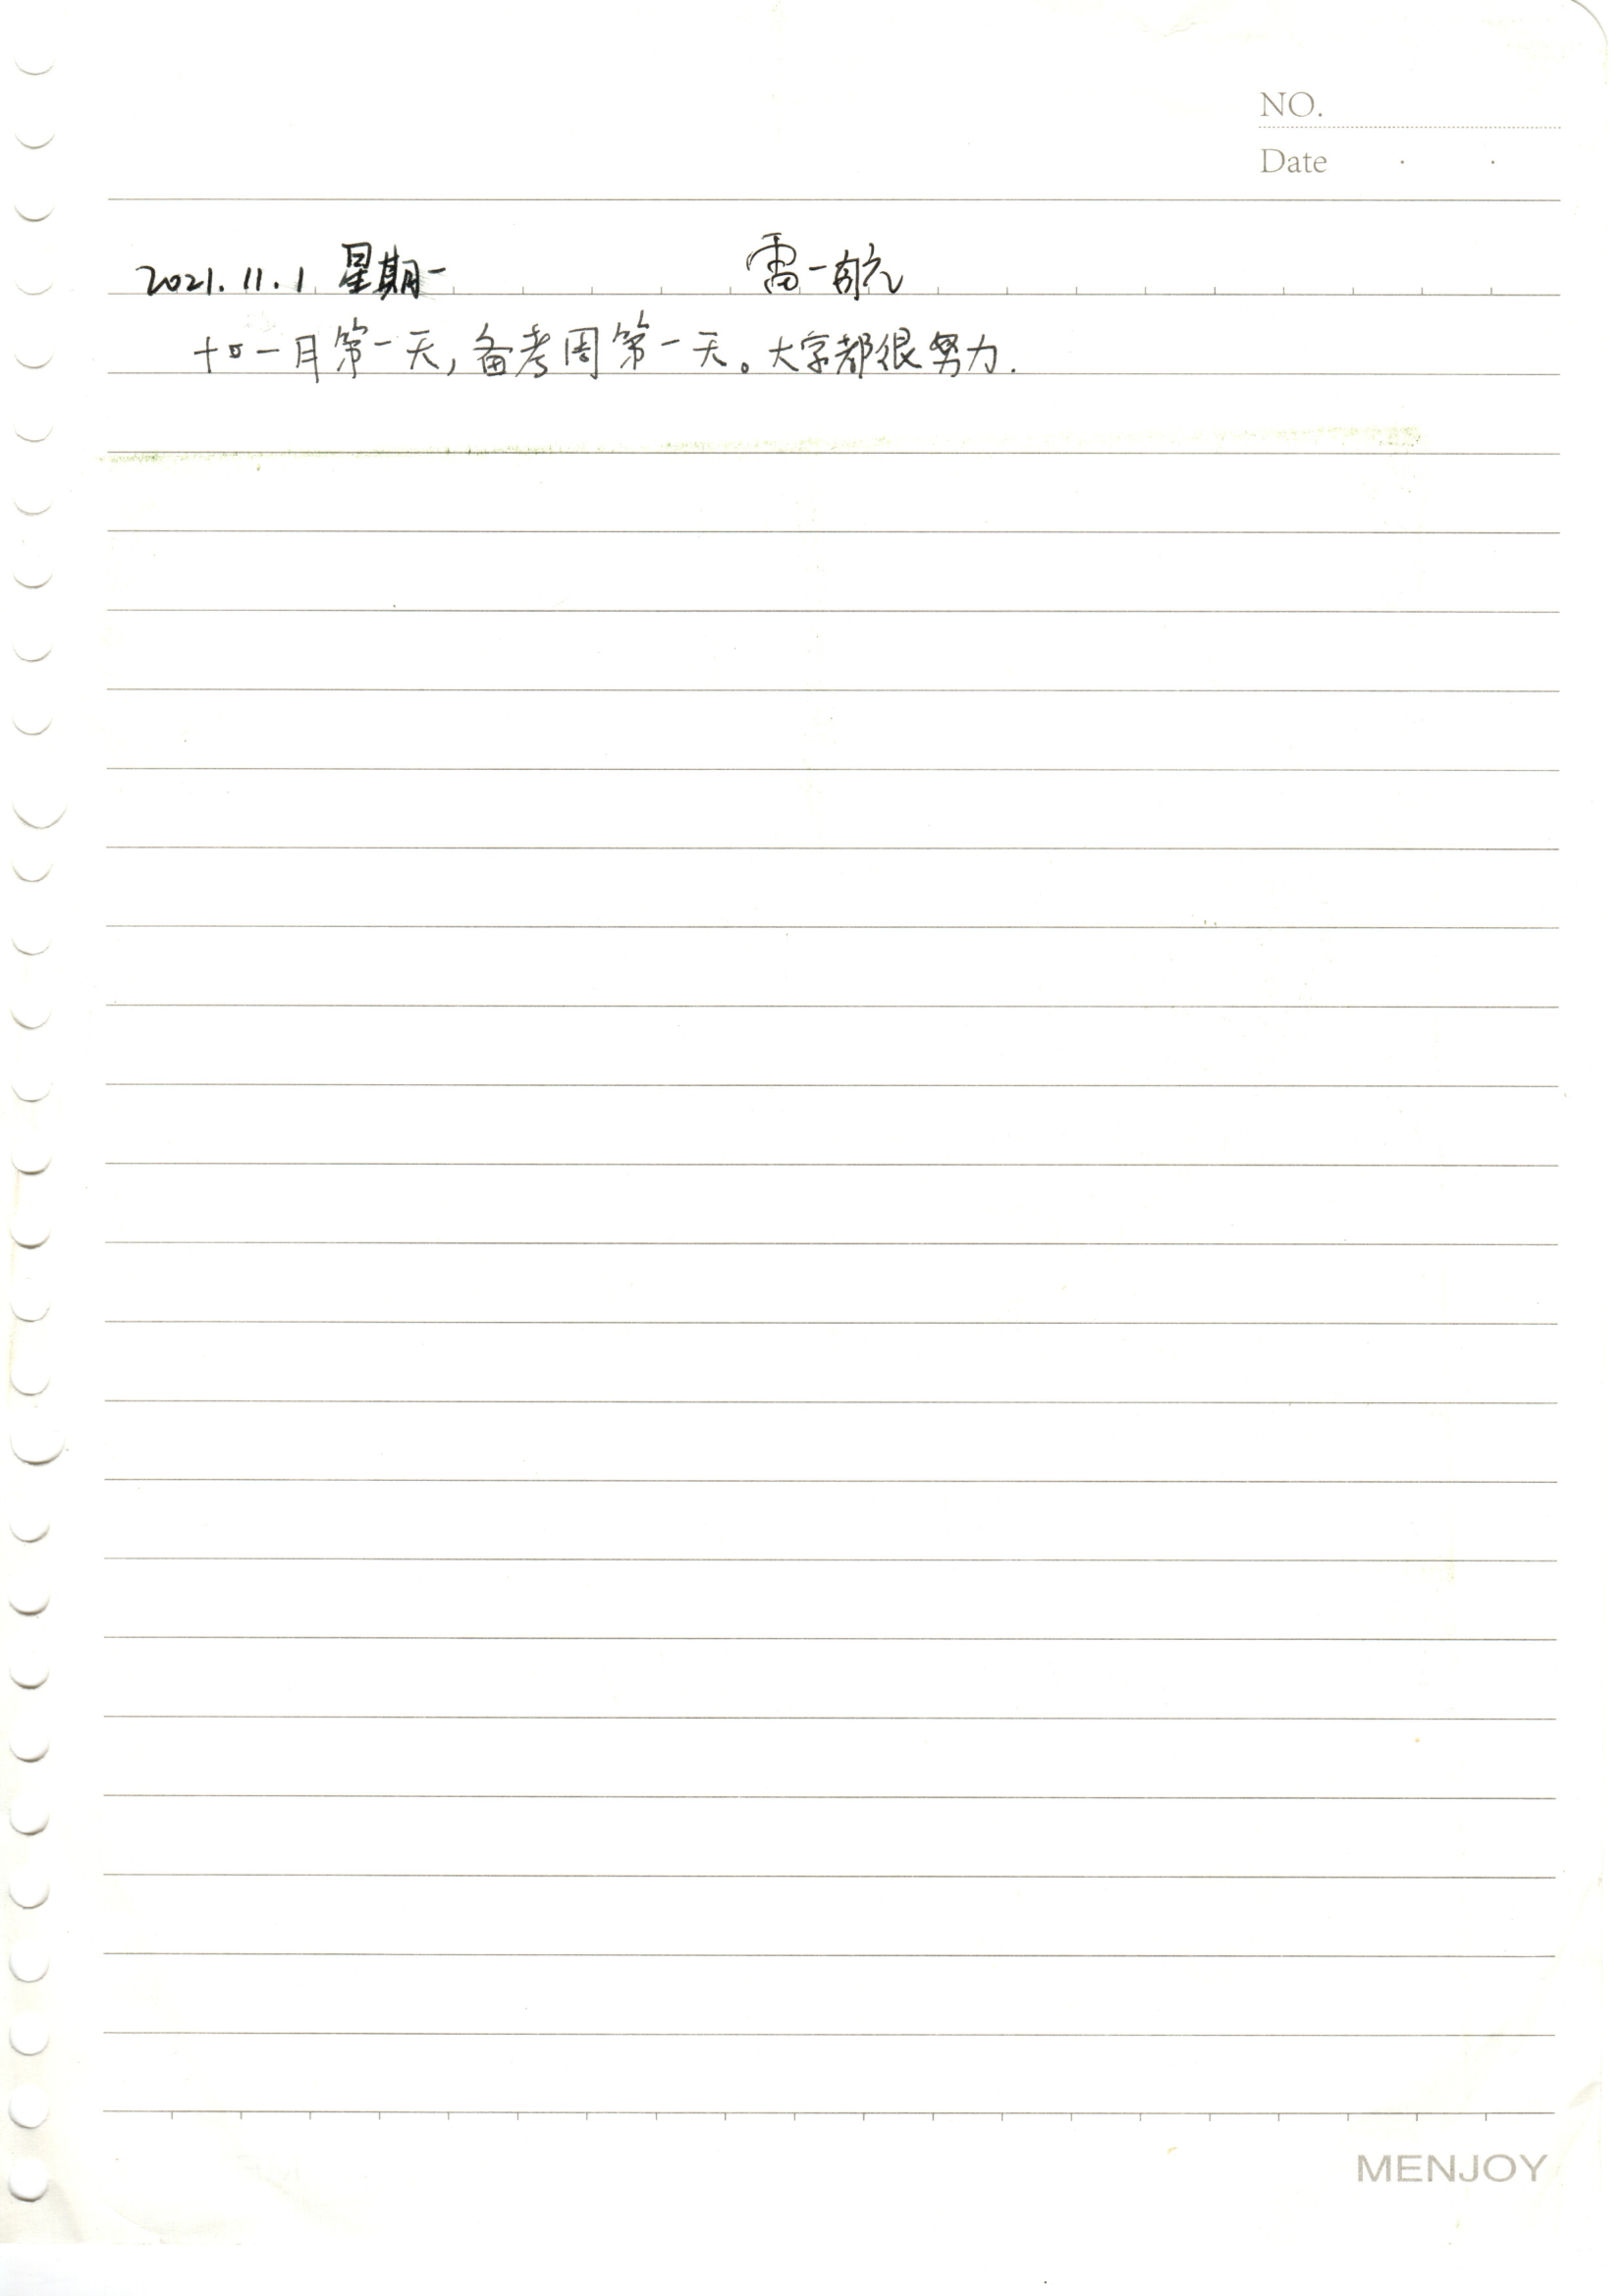 NO.
Date · ·
2021.11.1 星期一 雷一航
十一月第一天,备考周第一天。大家都很努力.
MENJOY